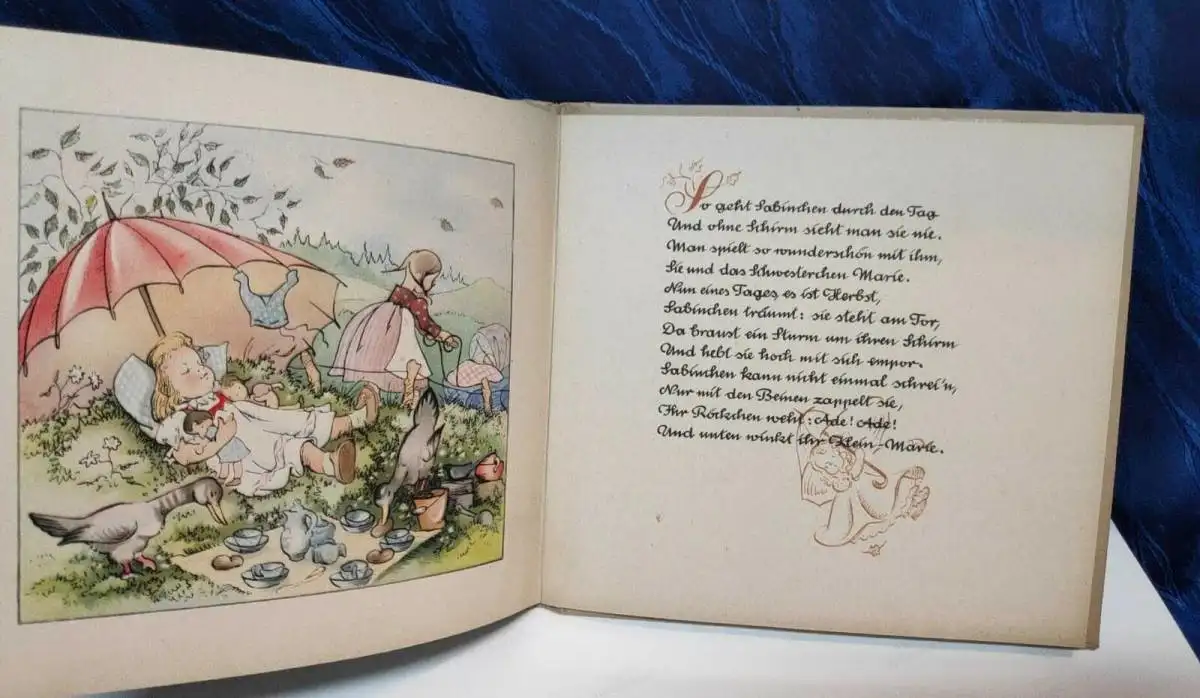 So geht Sabinchen durch den Tag
Und ohne Schirm sieht man sie nie.
Man spielt so wunderschön mit ihm,
Sie und das Schwesterchen Marie.
Nun eines Tages, es ist Herbst,
Sabinchen träumt: sie steht am Tor,
Da braust ein Sturm um ihren Schirm
Und hebt sie hoch mit sich empor.
Sabinchen kann nicht einmal schrei'n,
Nur mit den Beinen zappelt sie,
Ihr Röckchen weht: Ade! Ade!
Und unten winkt ihr Klein-Marie.